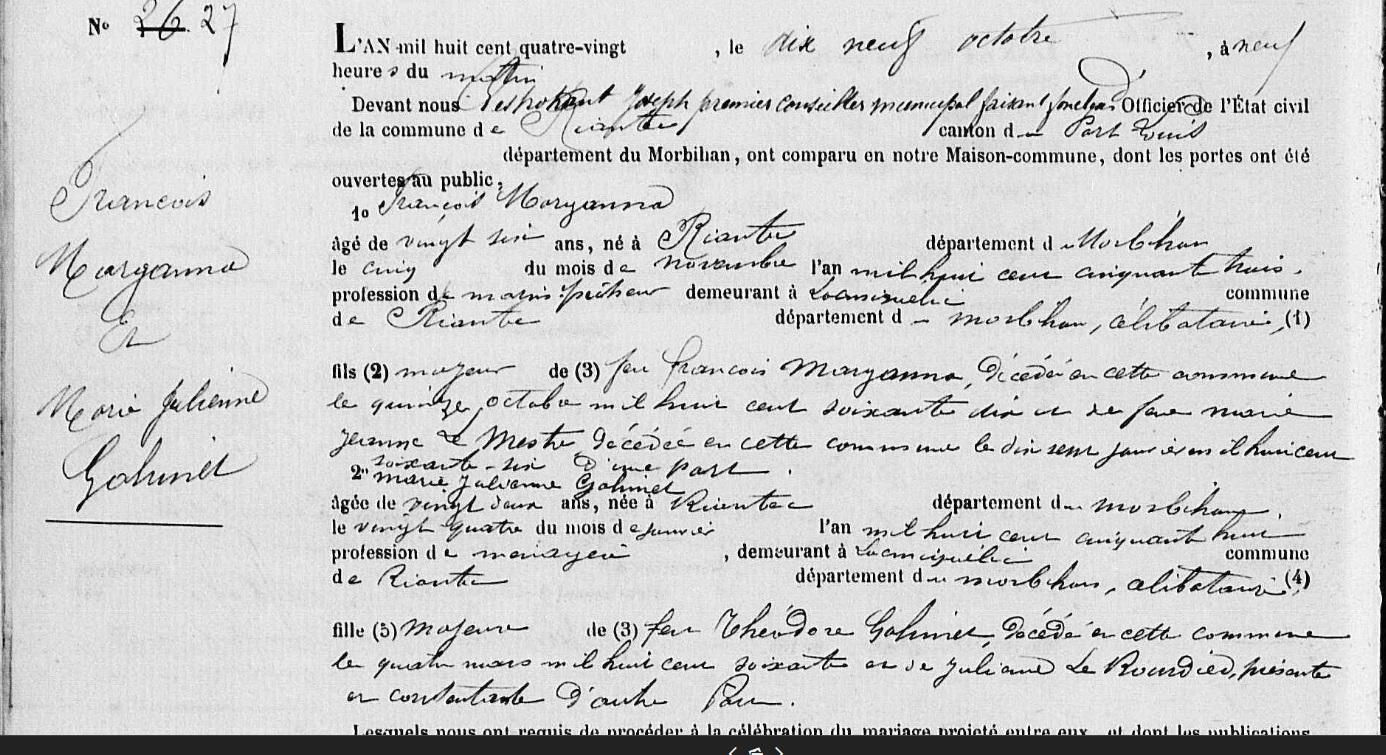 No 26. 27
L'AN mil huit cent quatre-vingt , le dix neuf octobre , à neuf
heures du matin
Devant nous Joseph premier conseiller municipal faisant fonctions d' Officier de l'État civil
de la commune de Riantec canton de Port Louis
département du Morbihan, ont comparu en notre Maison-commune, dont les portes ont été
ouvertes au public,
1o François Morganna
âgé de vingt six ans, né à Riantec département du Morbihan
le cinq du mois de novembre l'an mil huit cent cinquante trois.
profession de marin pêcheur demeurant à Locmiquélic commune
de Riantec département du morbihan, célibataire, (1)
fils (2) majeur de (3) feu François Morganna, décédé en cette commune
le quinze octobre mil huit cent soixante dix et de feue marie
jeanne Le Mestre décédée en cette commune le dix sept janvier mil huit cent
soixante-six d'une part.
2o marie julienne Gahinet
âgée de vingt deux ans, née à Riantec département du morbihan.
le vingt quatre du mois de janvier l'an mil huit cent cinquante huit
profession de ménagère , demeurant à Locmiquélic commune
de Riantec département du morbihan, célibataire, (4)
fille (5) majeure de (3) feu Théodore Gahinet, décédé en cette commune
le quatre mars mil huit cent soixante et de juliane Le Bourdiec, présente
et consentante d'autre Part.
Lesquels nous ont requis de procéder à la célébration du mariage projeté entre eux, et dont les publications
François
Morganna
Et
Marie Julienne
Gahinet